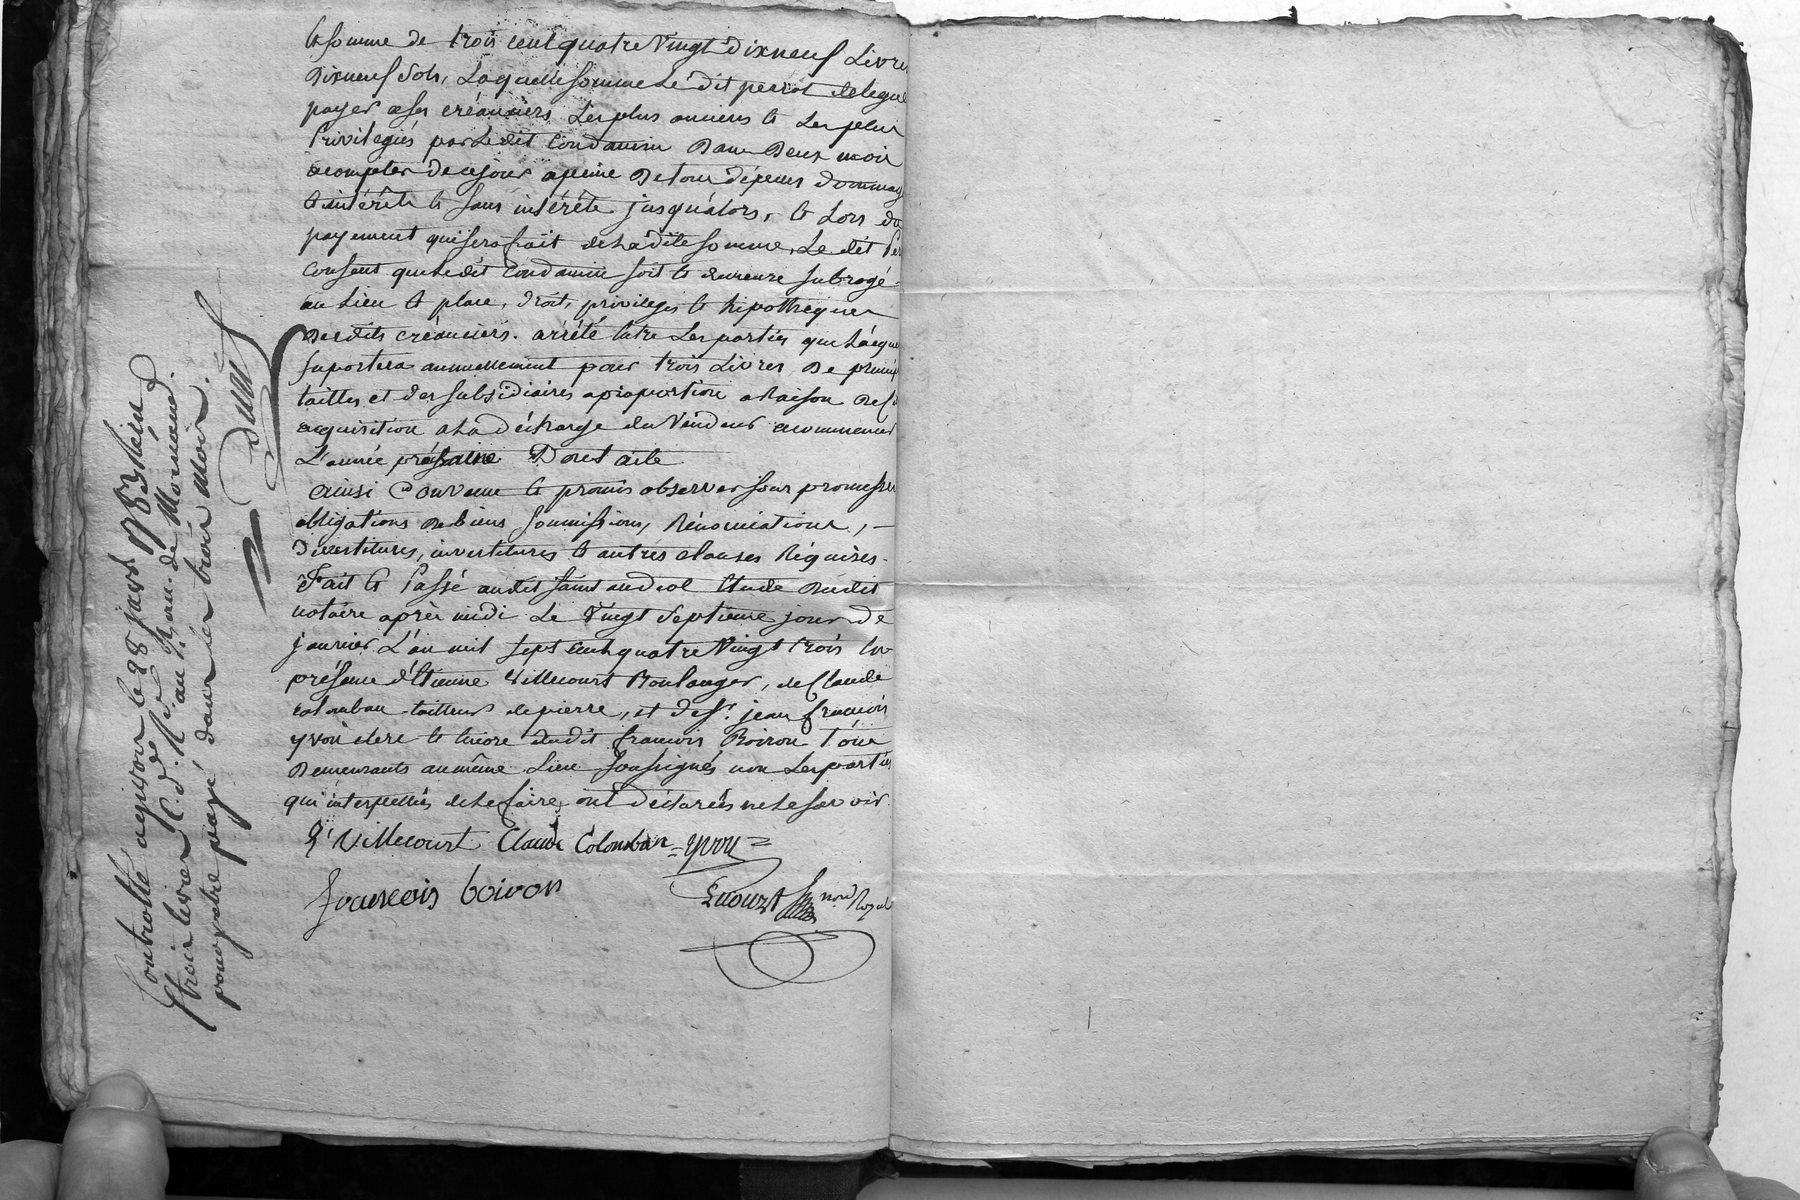 la somme de trois cent quatre vingt dixneuf Livres
Dixneuf sols, Laquelle somme Le dit perrot delegue
payer a ses créanciers Les plus anciens et Les plus
Privilegiés par Ledit Condamin Dans Deux mois
acompter de ce jour apeine De tous dépens dommag
et intérêts et sans intérêts jusqu'alors, et Lors du
payement qui sera fait de La dite somme, Le dit Per
Consent que Le dit Condamin soit et demeure subrogé
au Lieu et place, droit, privileges et hipotheques
Desdits créanciers. arrêté entre Les parties que L'acque
suportera annuellement pour trois Livres De princip
tailles et des subsidiaires aproportion a Raison De s
acquisition a La décharge du Vendeur acommencer
L'année prochaine Dont acte
ainsi Convenu et promis observer sous promesses
obligations De biens soumissions, Rénonciations,
Divestitures, investitures et autres clauses Réquises.
Fait et Passé audit saint andeol Etude Dudit
notaire après midi Le vingt septieme jour de
janvier L'an mil sept cent quatre vingt trois en
présence d'Etienne Villecourt Boulanger, de Claude
Colomban tailleur de pierre, et de sr. jean françois
yvon clerc et encore dudit francois Boiron tous
Demeurants au même Lieu soussignés non Les parties
qui interpellées de Le faire ont déclarées ne Le savoir
E Villecourt Claude Colomban = yvon =
francois boiron
not Royal
Controllé a givors le 28 janv. 1783 Reçu
trois livres
pour être payé dans les trois mois.